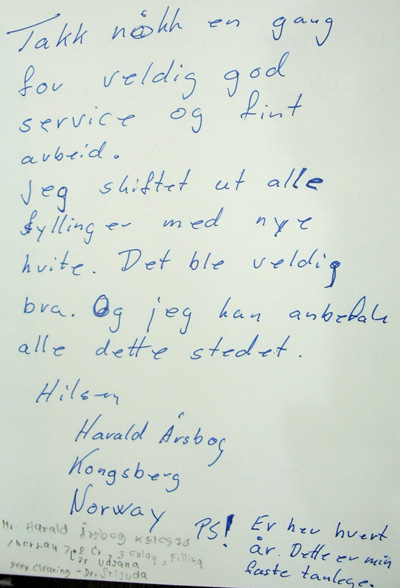 Takk nåkk en gang
for veldig god
service og fint
arbeid.
Jeg skiftet ut alle
fyllinger med nye
hvite. Det ble veldig
bra. Og jeg kan anbefale
alle dette stedet.
Hilsen
Harald Årsbog
Kongsberg
Norway
PS! Er her hvert
år. Dette er min
faste tanlege.
Mr. Harald Årsbog
/Norway 3 onlay, Filling
Dr. Udsana
Deep cleaning - Dr. Srisuda